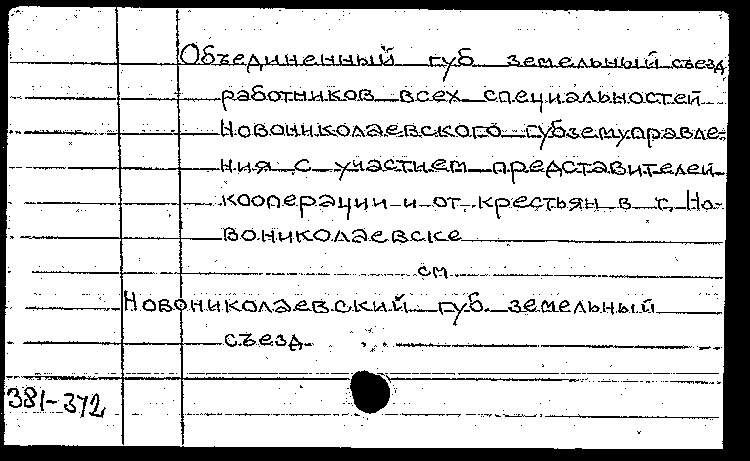 Объединенный губ земельный съезд
работников всех специальностей
Новониколаевского губземуправле-
ния с участием представителей
кооперации и от крестьян в г. Но-
вониколаевске
см
Новониколаевский губ. земельный
съезд
381-372